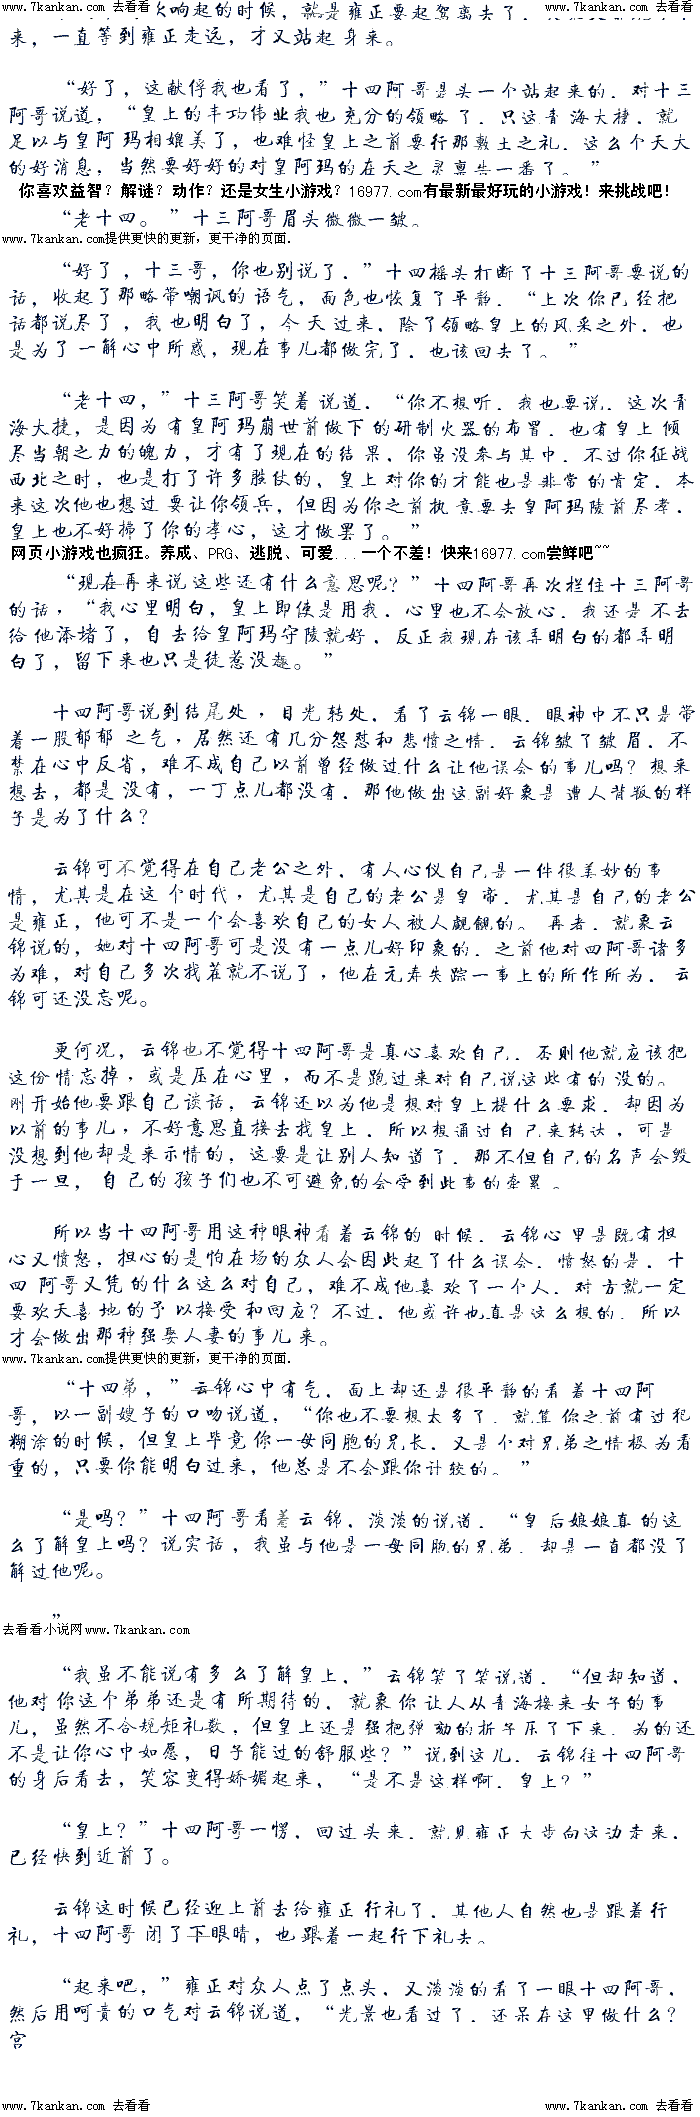 www.7kankan.com 去看看 www.7kankan.com 去看看
次响起的时候，就是雍正要起驾离去了，
来，一直等到雍正走远，才又站起身来。
“好了，这献俘我也看了，”十四阿哥是头一个站起来的．对十三
阿哥说道，“皇上的丰功伟业我也充分的领略了．只这青海大捷．就
足以与皇阿玛相媲美了，也难怪皇上之前要行那敷土之礼．这么个天大
的好消息，当然要好好的对皇阿玛的在天之灵禀告一番了。”
你喜欢益智？解谜？动作？还是女生小游戏？16977.com有最新最好玩的小游戏！来挑战吧！
“老十四。”十三阿哥眉头微微一皱。
www.7kankan.com提供更快的更新，更干净的页面.
“好了，十三哥，你也别说了．”十四摇头打断了十三阿哥要说的
话，收起了那略带嘲讽的语气，面色也恢复了平静．“上次你已经把
话都说尽了，我也明白了，今天过来．除了领略皇上的风采之外．也
是为了一解心中所惑，现在事儿都做完了．也该回去了。”
“老十四，”十三阿哥笑着说道．“你不想听．我也要说．这次青
海大捷，是因为有皇阿玛崩世前做下的研制火器的布置．也有皇上倾
尽当朝之力的魄力，才有了现在的结果．你虽没参与其中．不过你征战
西北之时，也是打了许多胜仗的，皇上对你的才能也是非常的肯定．本
来这次他也想过要让你领兵，但因为你之前执意要去皇阿玛陵前尽孝．
皇上也不好拂了你的孝心，这才做罢了。”
网页小游戏也疯狂。养成、PRG、逃脱、可爱...一个不差！快来16977.com尝鲜吧~~
“现在再来说这些还有什么意思呢？”十四阿哥再次拦住十三阿哥
的话，“我心里明白，皇上即使是用我．心里也不会放心．我还是不去
给他添堵了，自去给皇阿玛守陵就好．反正我现在该弄明白的都弄明
白了，留下来也只是徒惹没趣。”
十四阿哥说到结尾处，目光转处．看了云锦一眼．眼神中不只是带
着一股郁郁之气，居然还有几分怨怼和悲愤之情．云锦皱了皱眉．不
禁在心中反省，难不成自己以前曾经做过什么让他误会的事儿吗？想来
想去，都是没有，一丁点儿都没有．那他做出这副好象是遭人背叛的样
子是为了什么？
云锦可不觉得在自己老公之外．有人心仪自己是一件很美妙的事
情，尤其是在这个时代，尤其是自己的老公是皇帝．尤其是自己的老公
是雍正，他可不是一个会喜欢自己的女人被人觑觎的。再者．就象云
锦说的，她对十四阿哥可是没有一点儿好印象的．之前他对四阿哥诸多
为难，对自己多次找茬就不说了，他在元寿失踪一事上的所作所为．云
锦可还没忘呢。
更何况，云锦也不觉得十四阿哥是真心喜欢自己．否则他就应该把
这份情忘掉，或是压在心里，而不是跑过来对自己说这些有的没的。
刚开始他要跟自己谈话，云锦还以为他是想对皇上提什么要求．却因为
以前的事儿，不好意思直接去找皇上．所以想通过自己来转达，可是
没想到他却是来示情的，这要是让别人知道了．那不但自己的名声会毁
于一旦，自己的孩子们也不可避免的会受到此事的牵累。
所以当十四阿哥用这种眼神看着云锦的时候．云锦心里是既有担
心又愤怒，担心的是怕在场的众人会因此起了什么误会．愤怒的是．十
四阿哥又凭的什么这么对自己，难不成他喜欢了一个人．对方就一定
要欢天喜地的予以接受和回应？不过．他或许也真是这么想的．所以
才会做出那种强娶人妻的事儿来。
www.7kankan.com提供更快的更新，更干净的页面.
“十四弟，”云锦心中有气．面上却还是很平静的看着十四阿
哥，以一副嫂子的口吻说道，“你也不要想太多了．就算你之前有过犯
糊涂的时候，但皇上毕竟你一母同胞的兄长．又是个对兄弟之情极为看
重的，只要你能明白过来，他总是不会跟你计较的。”
“是吗？”十四阿哥看着云锦．淡淡的说道．“皇后娘娘真的这
么了解皇上吗？说实话，我虽与他是一母同胞的兄弟．却是一直都没了
解过他呢。
”
去看看小说网www.7kankan.com
“我虽不能说有多么了解皇上，”云锦笑了笑说道．“但却知道．
他对你这个弟弟还是有所期待的．就象你让人从青海接来女子的事
儿，虽然不合规矩礼数，但皇上还是强把弹劾的折子压了下来．为的还
不是让你心中如愿，日子能过的舒服些？”说到这儿．云锦往十四阿哥
的身后看去，笑容变得娇媚起来，“是不是这样啊．皇上？”
“皇上？”十四阿哥一愣，回过头来．就见雍正大步向这边走来．
已经快到近前了。
云锦这时候已经迎上前去给雍正行礼了．其他人自然也是跟着行
礼，十四阿哥闭了下眼睛，也跟着一起行下礼去。
“起来吧，”雍正对众人点了点头．又淡淡的看了一眼十四阿哥．
然后用呵责的口气对云锦说道，“光景也看过了．还呆在这里做什么？
宫
www.7kankan.com 去看看 www.7kankan.com 去看看